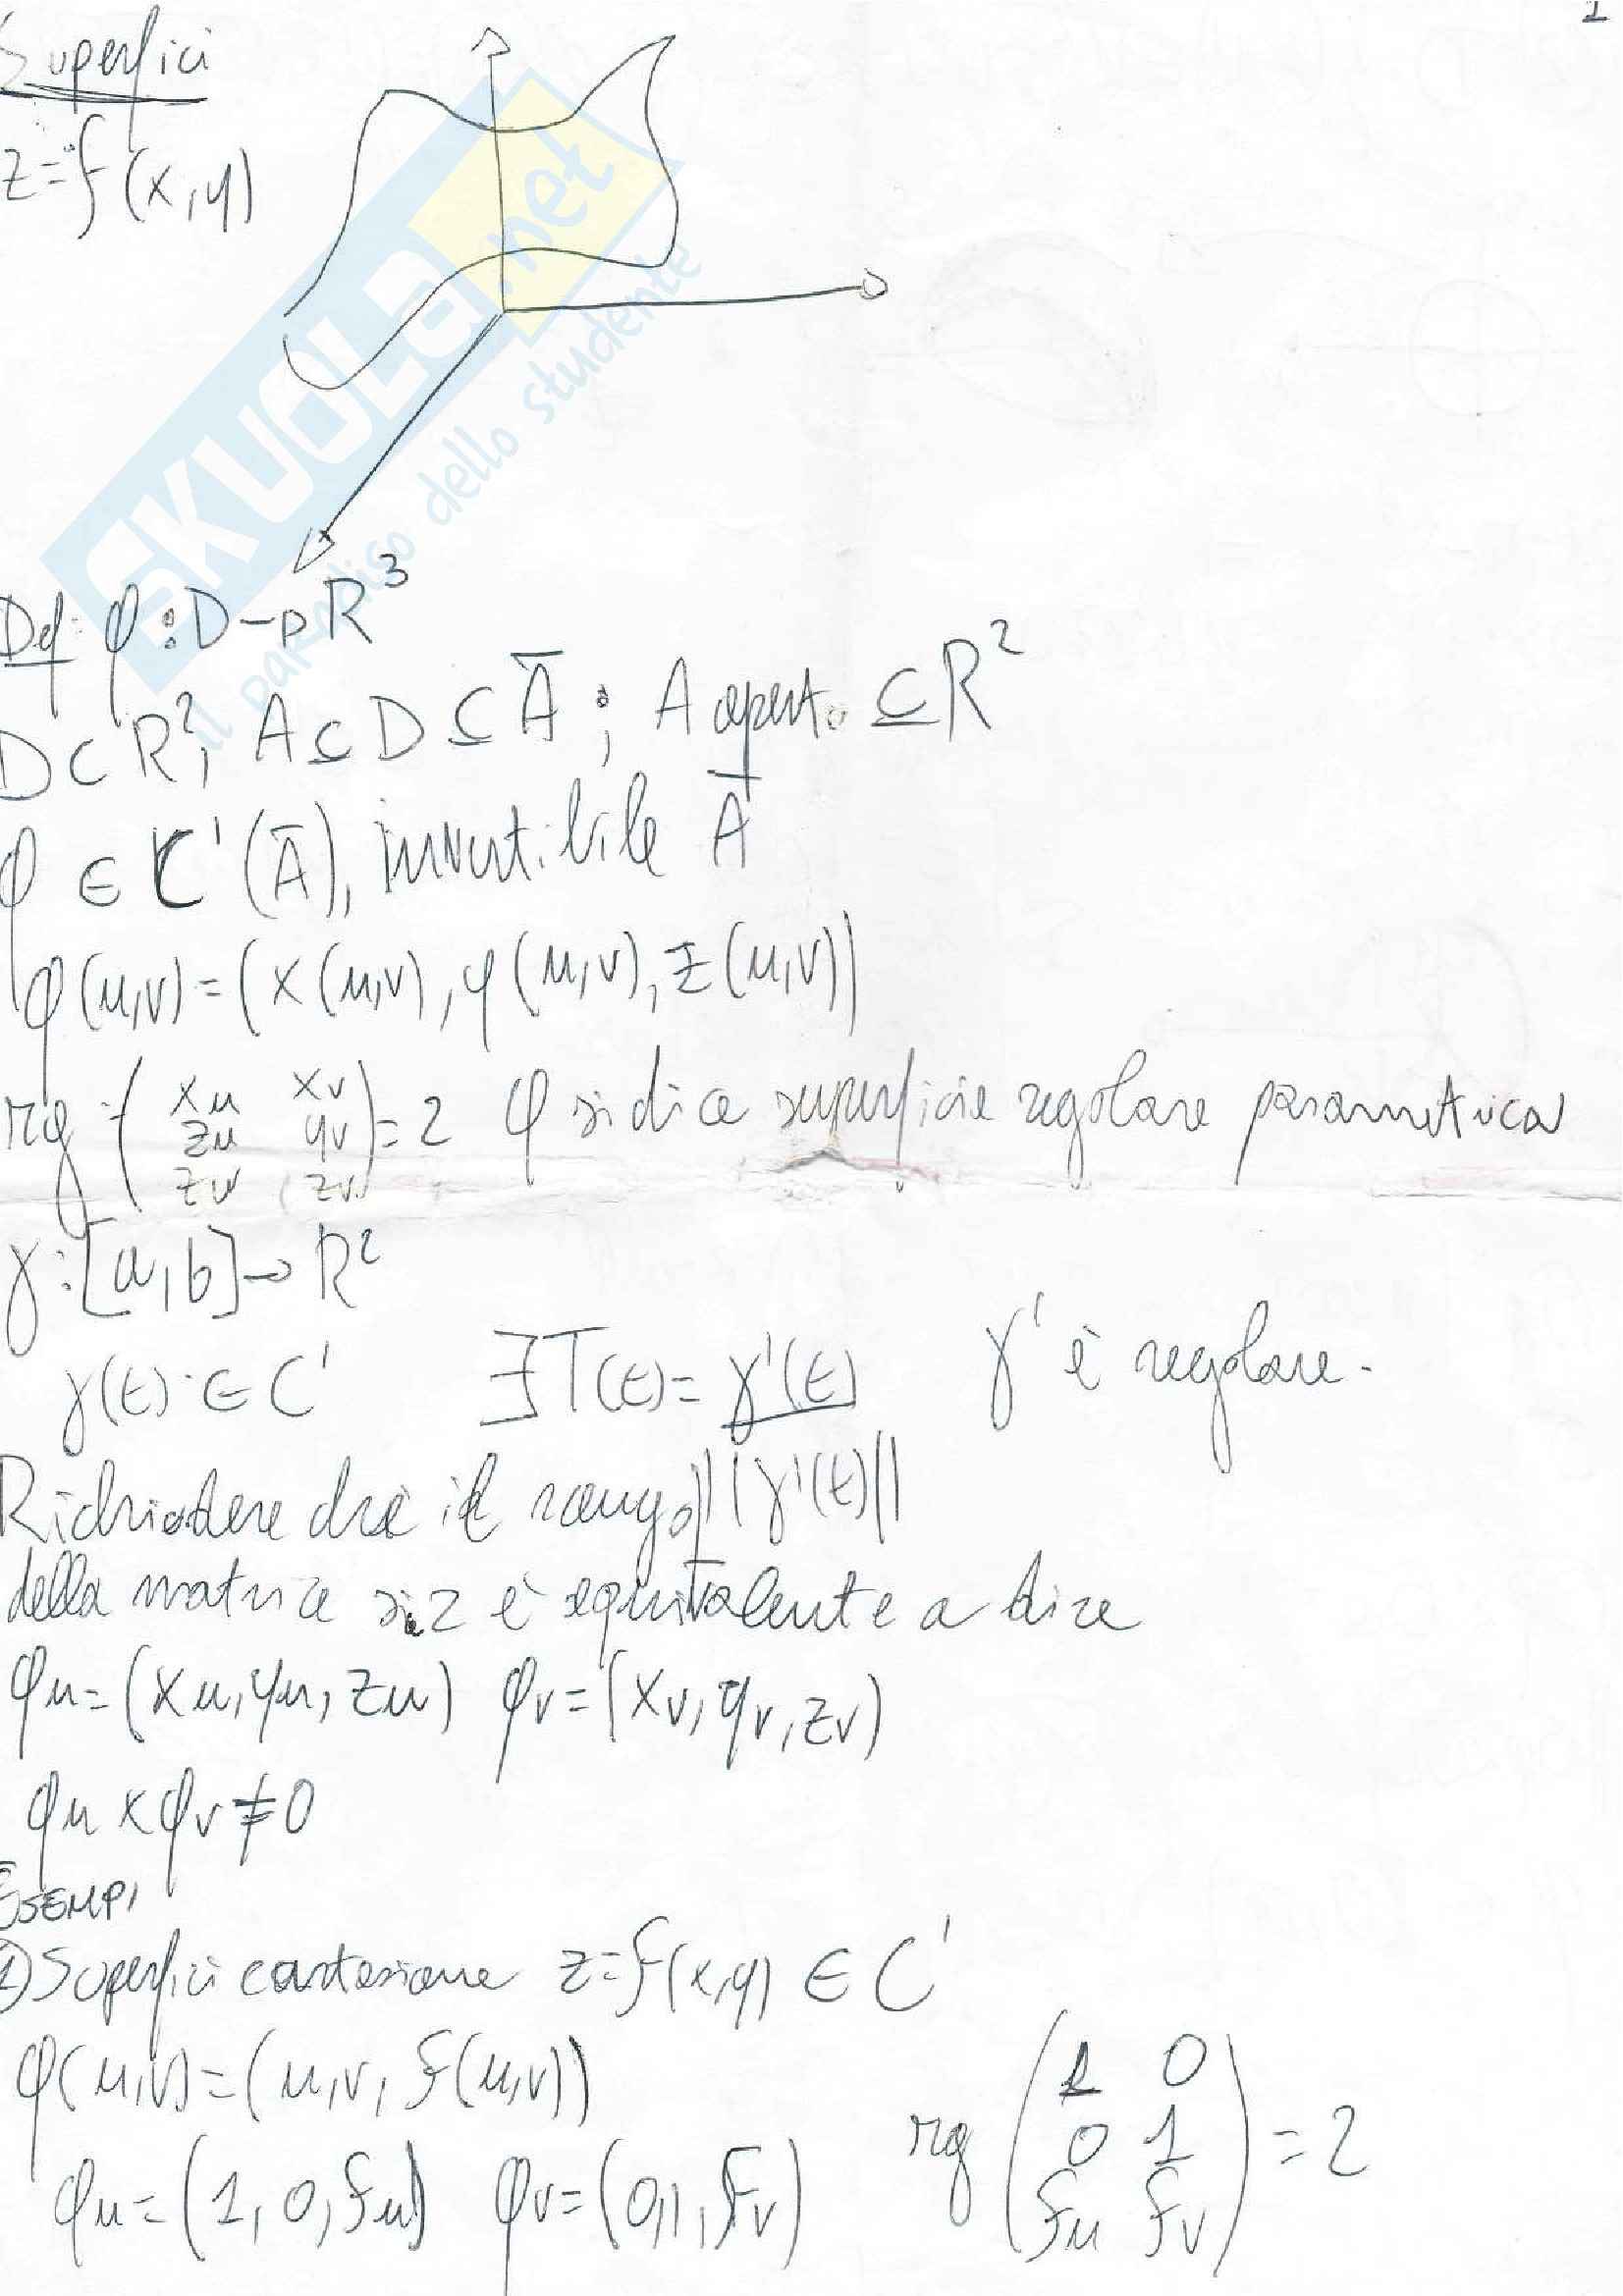 1
Superfici
z=f(x,y)
SKUOLA.net
il paradiso dello studente
Def: φ:D→R³
D⊂R², A⊆D⊆Ā; A aperto ⊆R²
φ∈C¹(Ā), invertibile Ā
φ(u,v)=(x(u,v),y(u,v),z(u,v))
rg (xu xv
zu yv
zu zv)=2 φ si dice superficie regolare parametrica
γ:[a,b]→R²
γ(t)∈C¹ ∃T(t)=γ'(t) γ' è regolare.
Richiedere che il rango ||γ'(t)||
della matrice sia 2 è equivalente a dire
φu=(xu,yu,zu) φv=(xv,yv,zv)
φu×φv≠0
ESEMPI
1) Superfici cartesiane z=f(x,y)∈C¹
φ(u,v)=(u,v,f(u,v))
φu=(1,0,fu) φv=(0,1,fv) rg (1 0
0 1
fu fv)=2